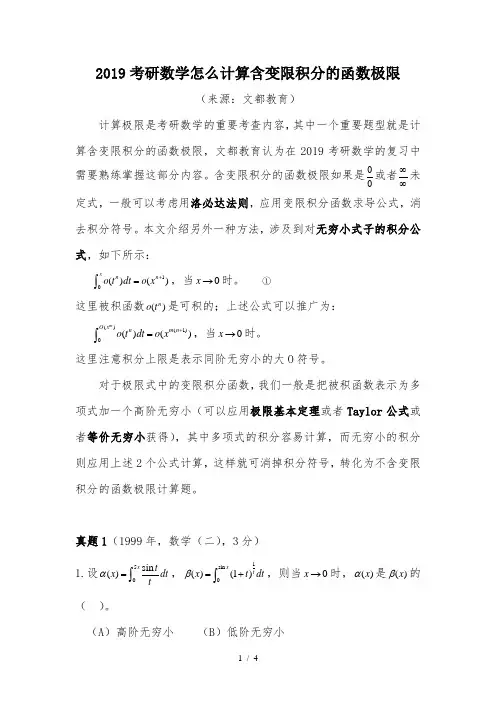 2019 考研数学怎么计算含变限积分的函数极限
（来源：文都教育）
计算极限是考研数学的重要考查内容，其中一个重要题型就是计
算含变限积分的函数极限，文都教育认为在 2019 考研数学的复习中
需要熟练掌握这部分内容。含变限积分的函数极限如果是 0/0 或者 ∞/∞ 未
定式，一般可以考虑用洛必达法则，应用变限积分函数求导公式，消
去积分符号。本文介绍另外一种方法，涉及到对无穷小式子的积分公
式，如下所示：
∫₀ˣ o(tⁿ)dt = o(xⁿ⁺¹)，当 x→0 时。 ①
这里被积函数 o(tⁿ) 是可积的；上述公式可以推广为：
∫₀^{O(x^m)} o(tⁿ)dt = o(x^{m(n+1)})，当 x→0 时。
这里注意积分上限是表示同阶无穷小的大 O 符号。
对于极限式中的变限积分函数，我们一般是把被积函数表示为多
项式加一个高阶无穷小（可以应用极限基本定理或者 Taylor 公式或
者等价无穷小获得），其中多项式的积分容易计算，而无穷小的积分
则应用上述 2 个公式计算，这样就可消掉积分符号，转化为不含变限
积分的函数极限计算题。
真题 1（1999 年，数学（二），3 分）
1.设 α(x) = ∫₀^{5x} (sin t)/t dt，β(x) = ∫₀^{sin x} (1+t)^{1/t} dt，则当 x→0 时，α(x) 是 β(x) 的
（ ）。
（A）高阶无穷小 （B）低阶无穷小
1 / 4